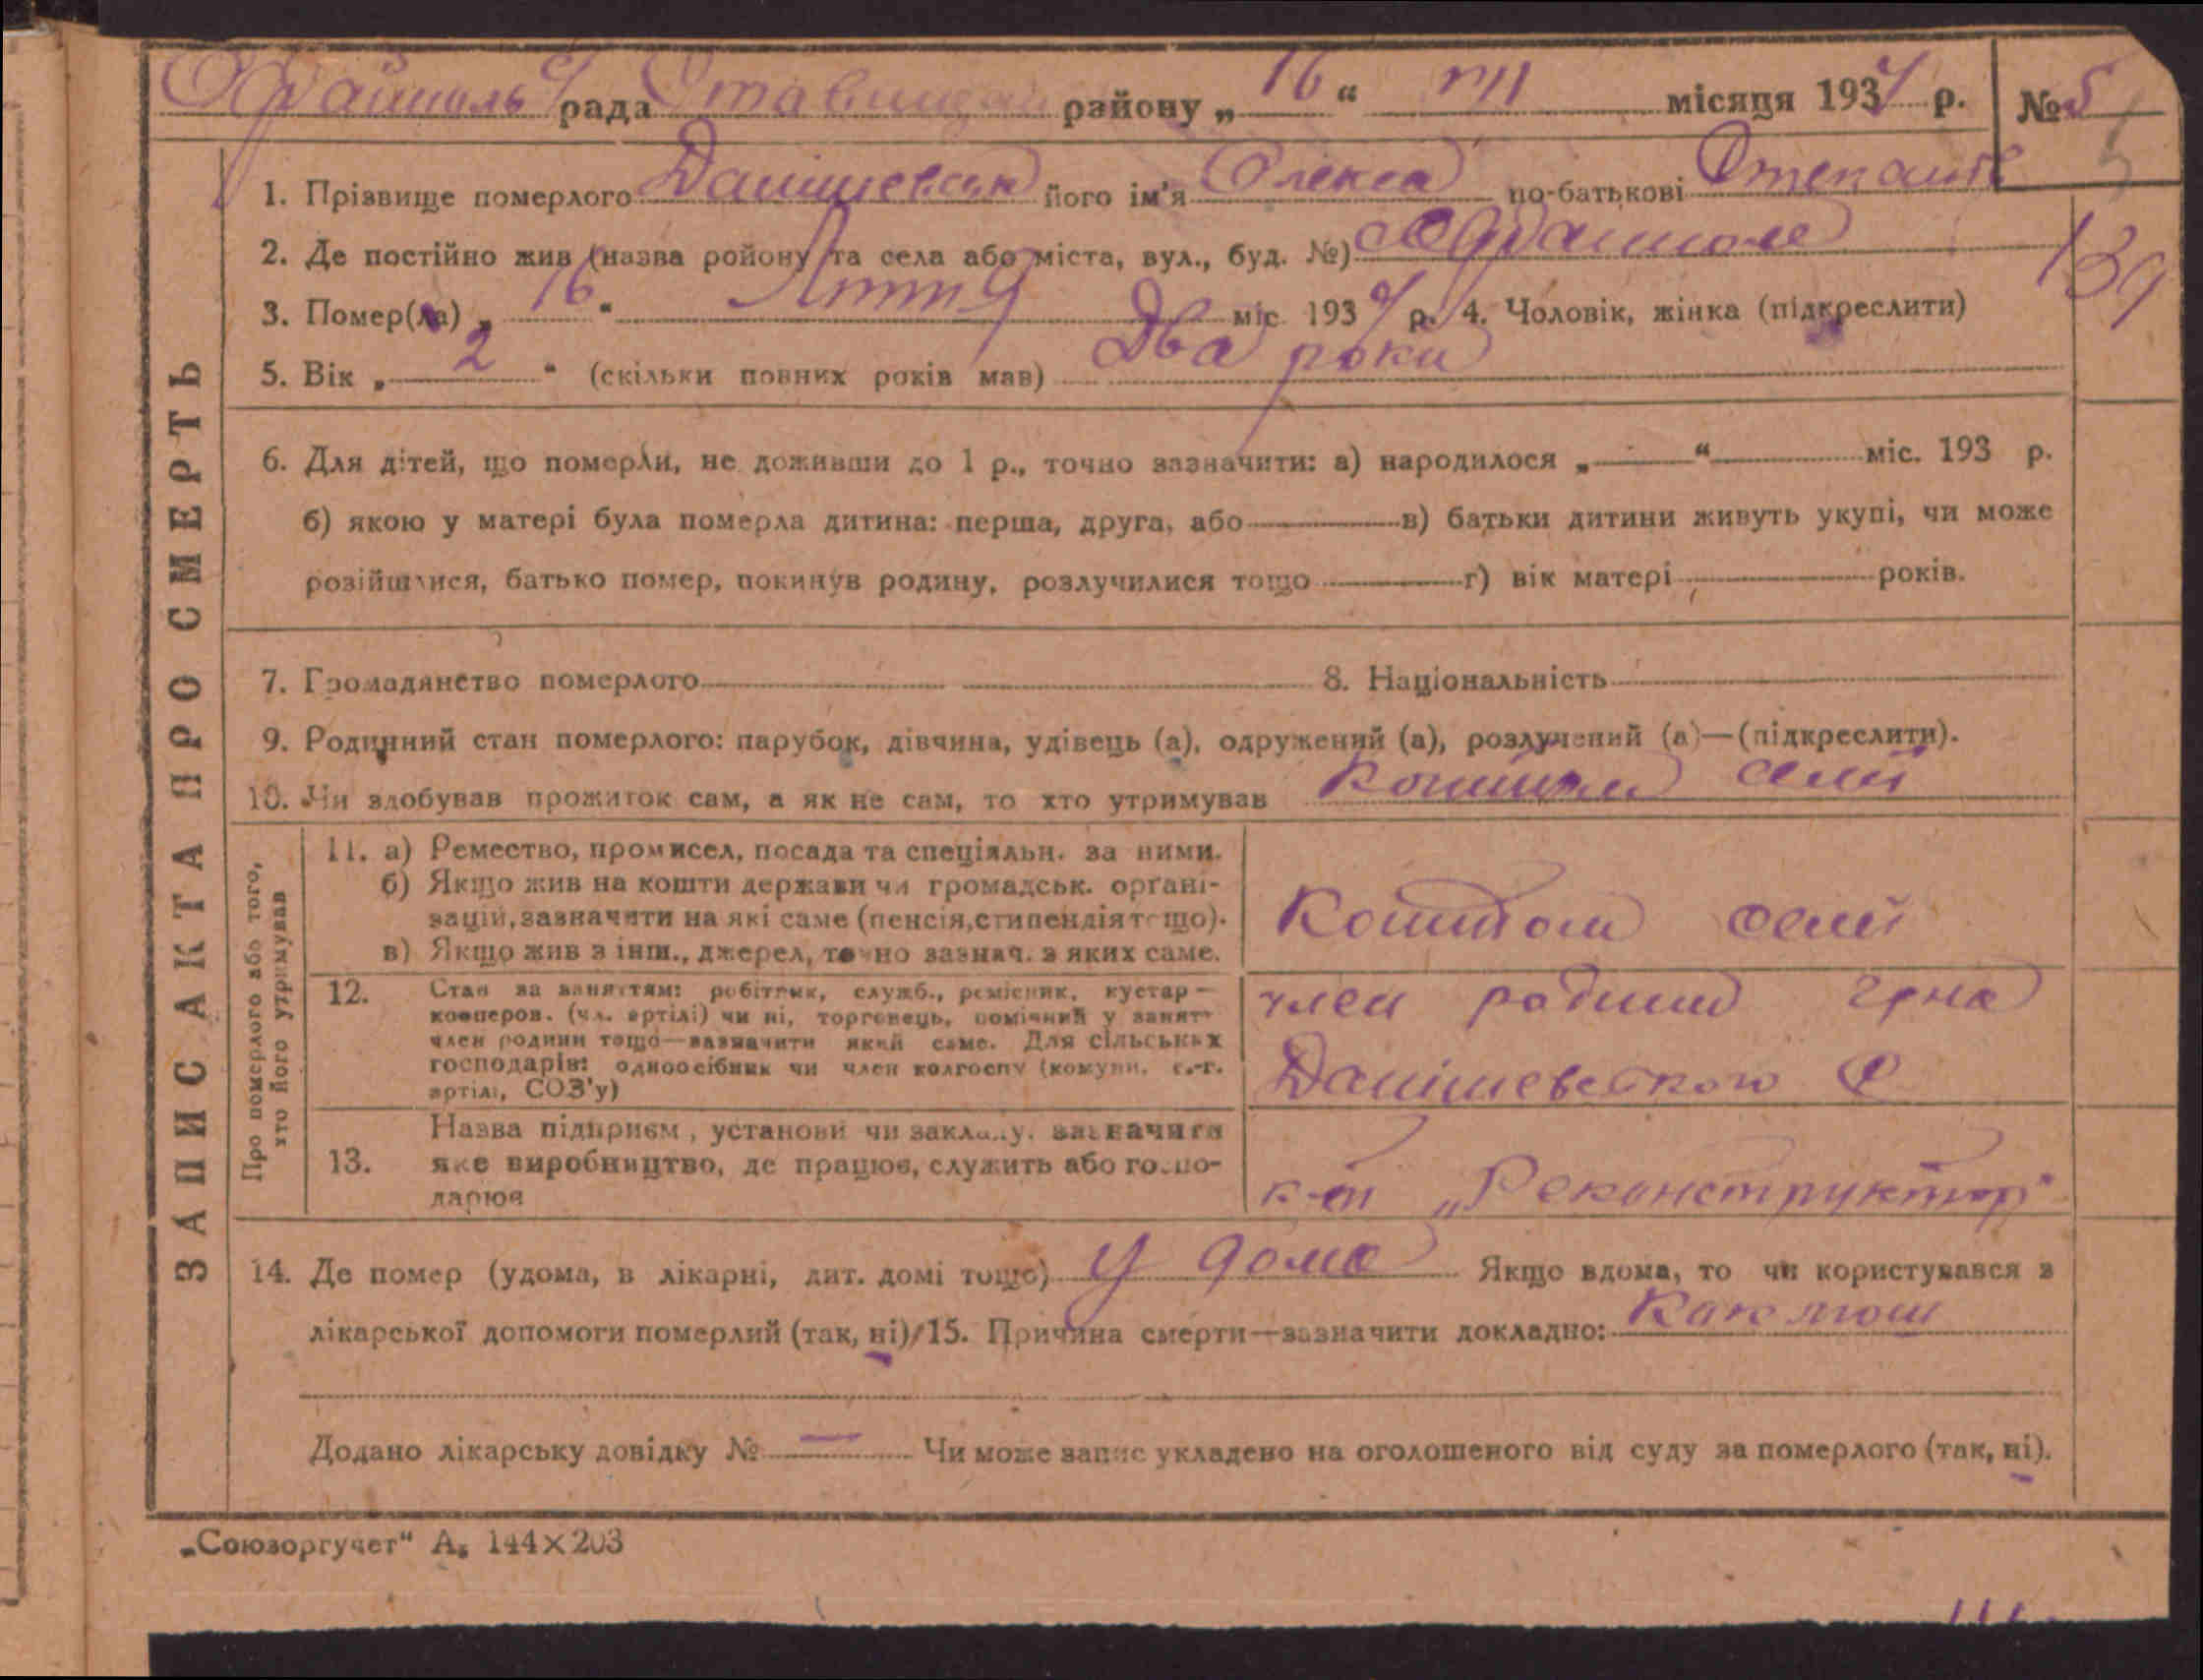 рада Ставищан району „ 16 “ VIII місяця 1934 р. № 5
1. Прізвище померлого Данішевськ його ім'я Олекса по-батькові Степанів
2. Де постійно жив (назва ройону та села або міста, вул., буд. №)
139
3. Помер(ла) „ 16 “ міс. 1934 р. 4. Чоловік, жінка (підкреслити)
5. Вік „ 2 “ (скільки повних років мав) Два роки
6. Для дітей, що померли, не доживши до 1 р., точно зазначити: а) народилося „ “ міс. 193 р.
б) якою у матері була померла дитина: перша, друга, або в) батьки дитини живуть укупі, чи може
розійшлися, батько помер, покинув родину, розлучилися тощо г) вік матері років.
7. Громадянство померлого 8. Національність
9. Родинний стан померлого: парубок, дівчина, удівець (а), одружений (а), розлучений (а)—(підкреслити).
10. Чи здобував прожиток сам, а як не сам, то хто утримував Коштом семї
ЗАПИС АКТА ПРО СМЕРТЬ
Про померлого або того,
хто його утримував
11. а) Ремество, промисел, посада та спеціяльн. за ними.
б) Якщо жив на кошти держави чи громадськ. органі-
зацій, зазначити на які саме (пенсія, стипендія тощо).
в) Якщо жив з інш., джерел, точно зазнач. з яких саме.
Коштом семї
12. Стан за заняттям: робітник, служб., ремісник, кустар —
кооперов. (чл. артілі) чи ні, торговець, помічний у занят.
член родини тощо—зазначити який саме. Для сільських
господарів: одноосібник чи член колгоспу (комуни, с.-г.
артілі, СОЗ'у)
член родини
Данішевського С
13. Назва підприєм., установи чи закладу. зазначити
яке виробництво, де працює, служить або госпо-
дарює
к-п „Реконструктор"
14. Де помер (удома, в лікарні, дит. домі тощо) У дома Якщо вдома, то чи користувався з
лікарської допомоги померлий (так, ні) 15. Причина смерти—зазначити докладно: Каклюш
Додано лікарську довідку № — Чи може запис укладено на оголошеного від суду за померлого (так, ні).
„Союзоргучет" А₅ 144×203